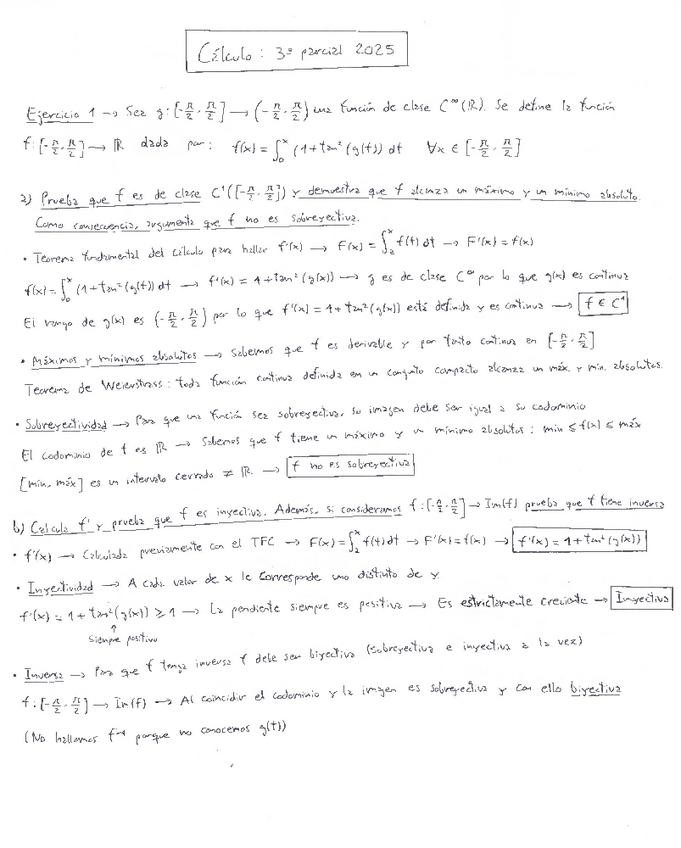 Cálculo: 3º parcial 2025
Ejercicio 1 → Sea g: [-π/2, π/2] → (-π/2, π/2) una función de clase C^∞(ℝ). Se define la función
f: [-π/2, π/2] → ℝ dada por: f(x) = ∫₀ˣ (1+tan²(g(t)) dt ∀x ∈ [-π/2, π/2]
a) Prueba que f es de clase C¹([-π/2, π/2]) y demuestra que f alcanza un máximo y un mínimo absoluto.
Como consecuencia, argumenta que f no es sobreyectiva.
• Teorema fundamental del cálculo para hallar f'(x) → F(x) = ∫ₐˣ f(t) dt → F'(x) = f(x)
f(x) = ∫₀ˣ (1+tan²(g(t)) dt → f'(x) = 1+tan²(g(x)) → g es de clase C^∞ por lo que g(x) es continua
El rango de g(x) es (-π/2, π/2) por lo que f'(x) = 1+tan²(g(x)) está definida y es continua → f ∈ C¹
• Máximos y mínimos absolutos → Sabemos que f es derivable y por tanto continua en [-π/2, π/2]
Teorema de Weierstrass: toda función continua definida en un conjunto compacto alcanza un máx y mín. absolutos.
• Sobreyectividad → Para que una función sea sobreyectiva, su imagen debe ser igual a su codominio
El codominio de f es ℝ → Sabemos que f tiene un máximo y un mínimo absolutos: min ≤ f(x) ≤ máx
[min, máx] es un intervalo cerrado ≠ ℝ → f no es sobreyectiva
b) Calcula f' y prueba que f es inyectiva. Además, si consideramos f: [-π/2, π/2] → Im(f) prueba que f tiene inversa
• f'(x) → Calculada previamente con el TFC → F(x) = ∫ₐˣ f(t) dt → F'(x) = f(x) → f'(x) = 1+tan²(g(x))
• Inyectividad → A cada valor de x le corresponde uno distinto de y
f'(x) = 1+tan²(g(x)) ≥ 1 → La pendiente siempre es positiva → Es estrictamente creciente → Inyectiva
↑
siempre positivo
• Inversa → Para que f tenga inversa f debe ser biyectiva (sobreyectiva e inyectiva a la vez)
f: [-π/2, π/2] → Im(f) → Al coincidir el codominio y la imagen es sobreyectiva y con ello biyectiva
(No hallamos f⁻¹ porque no conocemos g(t))